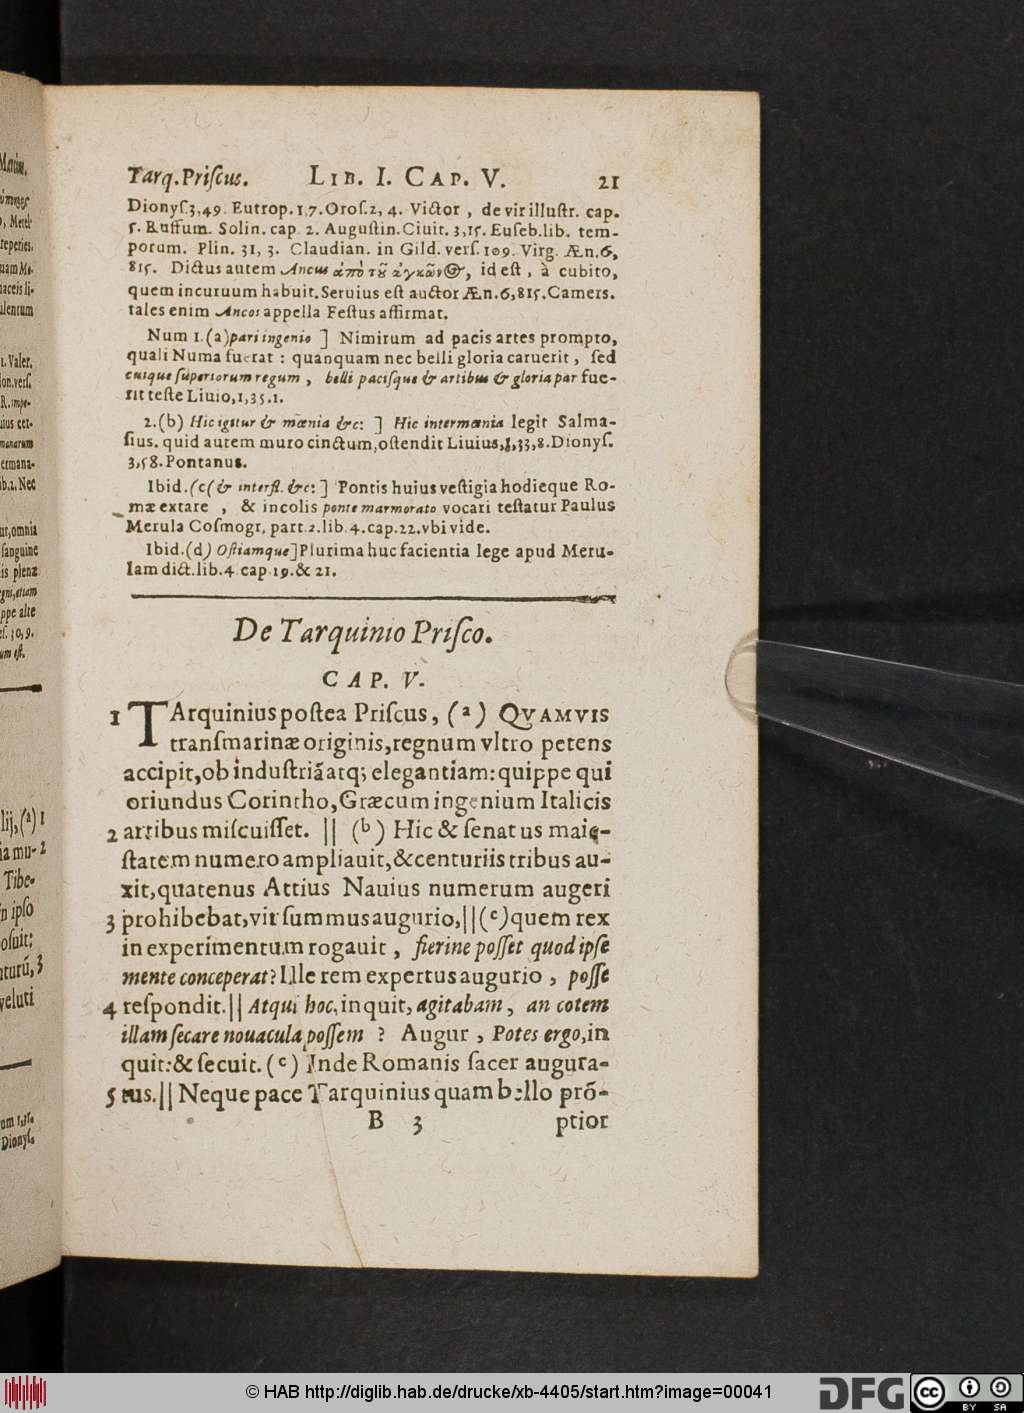 Tarq. Priſcus. LIB. I. CAP. V. 21
Dionyſ.3,49. Eutrop.1,7.Oroſ.2, 4. Victor, de vir illuſtr. cap.
5. Ruffum. Solin. cap. 2. Auguſtin. Ciuit. 3,15. Euſeb. lib. tem-
porum. Plin. 31, 3. Claudian. in Gild. verſ. 109. Virg. Æn.6,
815. Dictus autem Ancus ἀπὸ τοῦ ἀγκῶνος, id eſt, à cubito,
quem incuruum habuit. Seruius eſt auctor Æn.6,815. Camers.
tales enim Ancos appella Feſtus affirmat.
Num 1.(a) pari ingenio ] Nimirum ad pacis artes prompto,
quali Numa fuerat : quanquam nec belli gloria caruerit, ſed
cuique ſuperiorum regum, belli pacisque & artibus & gloria par fue-
rit teſte Liuio,1,35.1.
2.(b) Hic igitur & mœnia &c: ] Hic intermœnia legit Salma-
ſius. quid autem muro cinctum, oſtendit Liuius,1,33,8. Dionyſ.
3,58. Pontanus.
Ibid.(c( & interfl. &c: ] Pontis huius veſtigia hodieque Ro-
mæ extare, & incolis ponte marmorato vocari teſtatur Paulus
Merula Coſmogr, part.2.lib.4.cap.22.vbi vide.
Ibid.(d) Oſtiamque] Plurima huc facientia lege apud Meru-
lam dict.lib.4 cap.19.& 21.
De Tarquinio Priſco.
CAP. V.
1 TArquinius poſtea Priſcus, (a) QVAMVIS
tranſmarinæ originis, regnum vltro petens
accipit, ob induſtriã atq; elegantiam: quippe qui
oriundus Corintho, Græcum ingenium Italicis
2 artibus miſcuiſſet. || (b) Hic & ſenatus maie-
ſtatem numero ampliauit, & centuriis tribus au-
xit, quatenus Attius Nauius numerum augeri
3 prohibebat, vir ſummus augurio, || (c) quem rex
in experimentum rogauit, fierine poſſet quod ipſe
mente conceperat? Ille rem expertus augurio, poſſe
4 reſpondit. || Atqui hoc, inquit, agitabam, an cotem
illam ſecare nouacula poſſem ? Augur, Potes ergo, in
quit: & ſecuit. (c) Inde Romanis ſacer augura-
5 tus. || Neque pace Tarquinius quam bello prõ-
B 3 ptior
© HAB http://diglib.hab.de/drucke/xb-4405/start.htm?image=00041
DFG
cc
BY SA